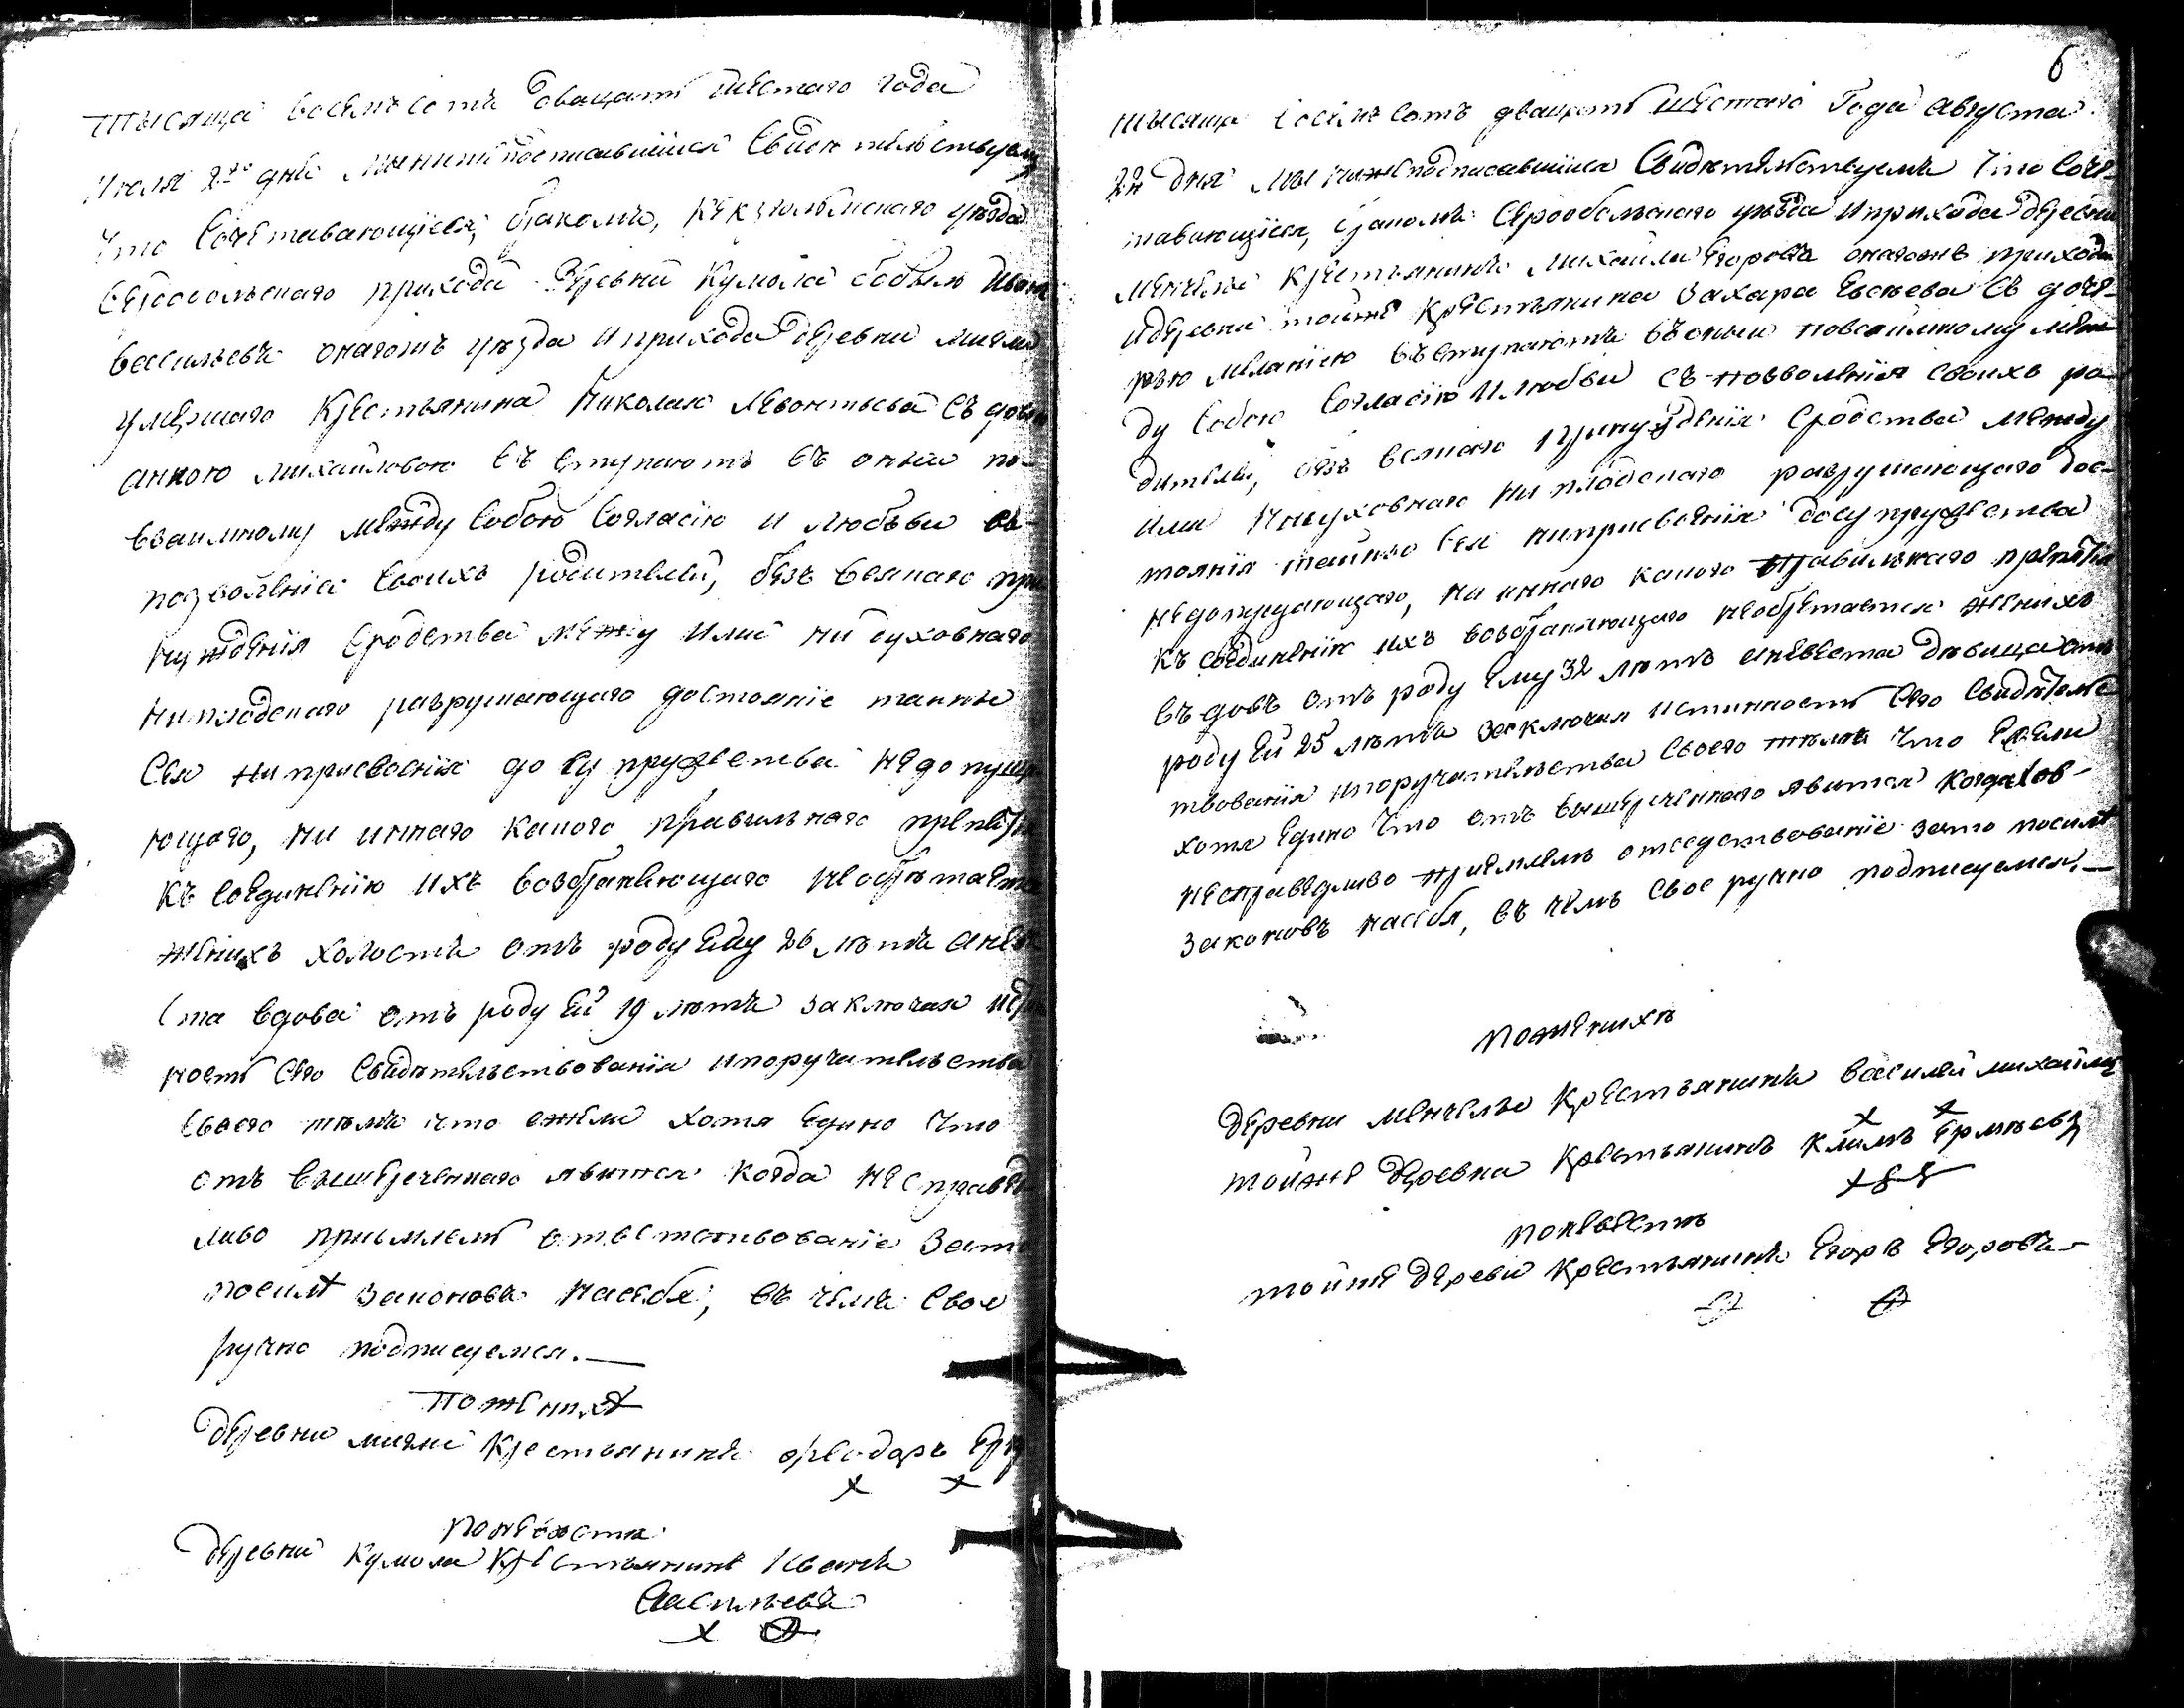 тысяща восемьсотъ дващать шестаго года
Июля 2го дня мы нижеподписавшиися свидетельствуемъ
что сочетавающиися, бракомъ, Кексгольмскаго уезда
Сердобольскаго прихода деревни Кумола бобыль Иванъ
Васильевъ онагожъ уезда и прихода деревни
умершаго крестьянина Николая Левонтьева съ
анною михайловою въ вступаютъ въ оный по-
взаимному между собою согласiю и любьви съ
позволенiя своихъ родителей, безъ всякаго при
нужденiя сродства межу ими ни духовнаго
ни плодскаго разрушающаго достоянiе таины
сея ни присвоенiя до супружества не допуща
ющаго, ни иннаго какого правильнаго препятiя
къ соединенiю ихъ возбраняющаго необретаетца
женихъ холостъ отъ роду ему 26 летъ а неве
ста вдова отъ роду ей 19 летъ заключая истин
ность сего свидетельствованiя и поручительства
своего темъ что ежели хотя едино что
отъ вышереченнаго явится когда несправед
ливо прiемлемъ ответствованiе за то
посиле законовъ насебя, въ чемъ свое
ручно подписуемся.—
по женихе
деревни крестьянинъ феодоръ
х х
по невесте
деревни Кумола крестьянинъ Иванъ
Васильевъ
х
6
тысяща восемьсотъ дващать шестаго Года августа
22 дня мы нижеподписавшиися свидетельствуемъ что соче-
тавающиися, бракомъ Сердобольскаго уезда и прихода деревни
крестьянинъ михайла Егоровъ онагожъ прихода
и деревни тойже крестьянина Захара Евсеева съ доче-
рью меланiею въ вступаютъ въ оный по взаимному меж-
ду собою согласiю и любви съ позволенiя своихъ ро-
дителей, безъ всякаго принужденiя сродства между
ими ни духовнаго ни плодскаго разрушающаго дос-
тоянiя тайны сея ни присвоенiя до супружества
недопущающаго, ни иннаго какого правильнаго препятiя
къ соединенiю ихъ возбраняющаго необретается женихъ
въдовъ отъ роду ему 32 летъ а невеста девица отъ
роду ей 25 летъ заключая истинность сего свидетель-
твованiя и поручительства своего темъ что ежели
хотя едино что отъ вышереченнаго явится когда
несправедливо прiемлемъ ответствованiе за то посиле
законовъ насебя, въ чемъ свое ручно подписуемся.—
по женихе
деревни крестьянинъ василей михайловъ
х х
тойже деревни крестьянинъ Климъ Ермеевъ
по невесте
тойже деревни крестьянинъ Егоръ Егоровъ